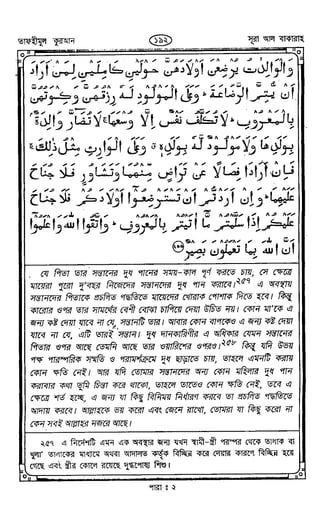 তাফহীমুল কুরআন
১৯২
সূরা আল বাকারাহ
وَالْوَالِدٰتُ يُرْضِعْنَ اَوْلَادَهُنَّ حَوْلَيْنِ كَامِلَيْنِ لِمَنْ اَرَادَ
اَنْ يُّتِمَّ الرَّضَاعَةَ ؕ وَعَلَى الْمَوْلُوْدِ لَهٗ رِزْقُهُنَّ وَكِسْوَتُهُنَّ
بِالْمَعْرُوْفِ ؕ لَا تُكَلَّفُ نَفْسٌ اِلَّا وُسْعَهَا ۚ لَا تُضَآرَّ وَالِدَةٌۢ
بِوَلَدِهَا وَلَا مَوْلُوْدٌ لَّهٗ بِوَلَدِهٖ ۗ وَعَلَى الْوَارِثِ مِثْلُ ذٰلِكَ ۚ
فَاِنْ اَرَادَا فِصَالًا عَنْ تَرَاضٍ مِّنْهُمَا وَتَشَاوُرٍ فَلَا جُنَاحَ
عَلَيْهِمَا ؕ وَاِنْ اَرَدْتُّمْ اَنْ تَسْتَرْضِعُوْٓا اَوْلَادَكُمْ فَلَا جُنَاحَ
عَلَيْكُمْ اِذَا سَلَّمْتُمْ مَّآ اٰتَيْتُمْ بِالْمَعْرُوْفِ ؕ وَاتَّقُوا اللّٰهَ وَاعْلَمُوْٓا
اَنَّ اللّٰهَ بِمَا تَعْمَلُوْنَ بَصِيْرٌ
যে পিতা তার সন্তানের দুধ পানের সময়-কাল পূর্ণ করতে চায়, সে ক্ষেত্রে
মায়েরা পুরো দু'বছর নিজেদের সন্তানদের দুধ পান করাবে।২৫৭ এ অবস্থায়
সন্তানদের পিতাকে প্রচলিত পদ্ধতিতে মায়েদের খোরাক পোশাক দিতে হবে। কিন্তু
কারোর ওপর তার সামর্থের বেশী বোঝা চাপিয়ে দেয়া উচিত নয়। কোন মা'কে এ
জন্য কষ্ট দেয়া যাবে না যে, সন্তানটি তার। আবার কোন বাপকেও এ জন্য কষ্ট দেয়া
যাবে না যে, এটি তারই সন্তান। দুধ দানকারিণীর এ অধিকার যেমন সন্তানের
পিতার ওপর আছে তেমনি আছে তার ওয়ারিশের ওপরও।২৫৮ কিন্তু যদি উভয়
পক্ষ পারস্পরিক সম্মতি ও পরামর্শক্রমে দুধ ছাড়াতে চায়, তাহলে এমনটি করায়
কোন ক্ষতি নেই। আর যদি তোমার সন্তানদের অন্য কোন মহিলার দুধ পান
করাবার কথা তুমি চিন্তা করে থাকো, তাহলে তাতেও কোন ক্ষতি নেই, তবে এ
ক্ষেত্রে শর্ত হচ্ছে, এ জন্য যা কিছু বিনিময় নির্ধারণ করবে তা প্রচলিত পদ্ধতিতে
আদায় করবে। আল্লাহকে ভয় করো এবং জেনে রাখো, তোমরা যা কিছু করো না
কেন সবই আল্লাহর নজরে আছে।
২৫৭. এ নির্দেশটি এমন এক অবস্থার জন্য যখন স্বামী-স্ত্রী পরস্পর থেকে তালাক বা
'খুলা' তালাকের মাধ্যমে অথবা আদালত কর্তৃক বিচ্ছিন্ন করে দেয়ার কারণে বিচ্ছিন্ন হয়ে
গেছে এবং স্ত্রীর কোলে রয়েছে দুগ্ধপোষ্য শিশু।
পারা : ২